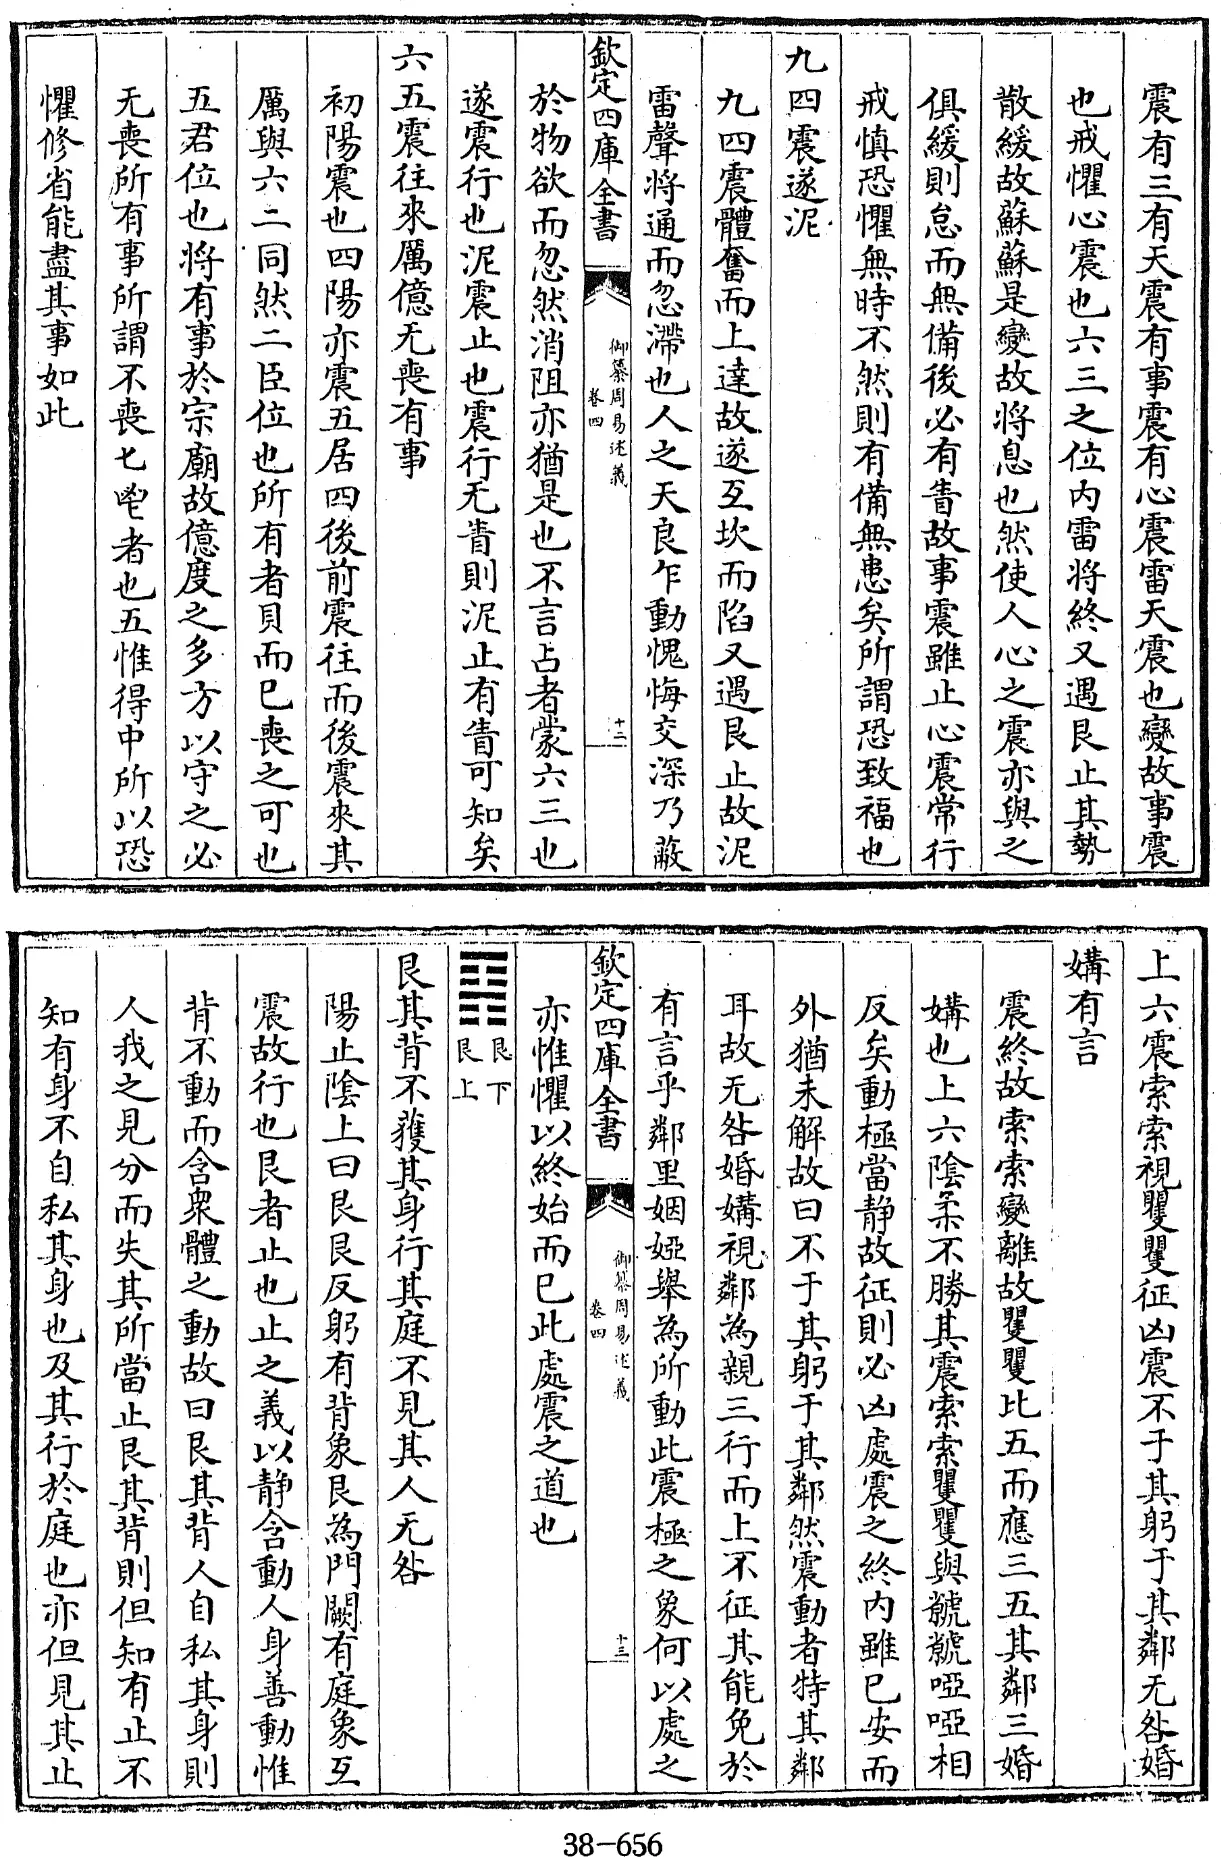 震有三有天震有事震有心震雷天震也變故事震
也戒懼心震也六三之位内雷将終又遇艮止其勢
散緩故蘇蘇是變故将息也然使人心之震亦與之
俱緩則怠而無備後必有眚故事震雖止心震常行
戒慎恐懼無時不然則有備無患矣所謂恐致福也
九四震遂泥
九四震體奮而上達故遂互坎而陷又遇艮止故泥
雷聲将通而忽滯也人之天良乍動愧悔交深乃蔽
欽定四庫全書
御纂周易述義
卷四
十二
於物欲而忽然消阻亦猶是也不言占者蒙六三也
遂震行也泥震止也震行无眚則泥止有眚可知矣
六五震往來厲億无喪有事
初陽震也四陽亦震五居四後前震往而後震來其
厲與六二同然二臣位也所有者貝而已喪之可也
五君位也将有事於宗廟故億度之多方以守之必
无喪所有事所謂不喪七鬯者也五惟得中所以恐
懼修省能盡其事如此
上六震索索視矍矍征凶震不于其躬于其鄰无咎婚
媾有言
震終故索索變離故矍矍比五而應三五其鄰三婚
媾也上六陰柔不勝其震索索矍矍與虩虩啞啞相
反矣動極當静故征則必凶處震之終内雖已安而
外猶未解故曰不于其躬于其鄰然震動者特其鄰
耳故无咎婚媾視鄰為親三行而上不征其能免於
有言乎鄰里姻婭舉為所動此震極之象何以處之
欽定四庫全書
御纂周易述義
卷四
十三
亦惟懼以終始而已此處震之道也
䷳艮下
艮上
艮其背不獲其身行其庭不見其人无咎
陽止陰上曰艮艮反躬有背象艮為門闕有庭象互
震故行也艮者止也止之義以静含動人身善動惟
背不動而含衆體之動故曰艮其背人自私其身則
人我之見分而失其所當止艮其背則但知有止不
知有身不自私其身也及其行於庭也亦但見其止
38-656